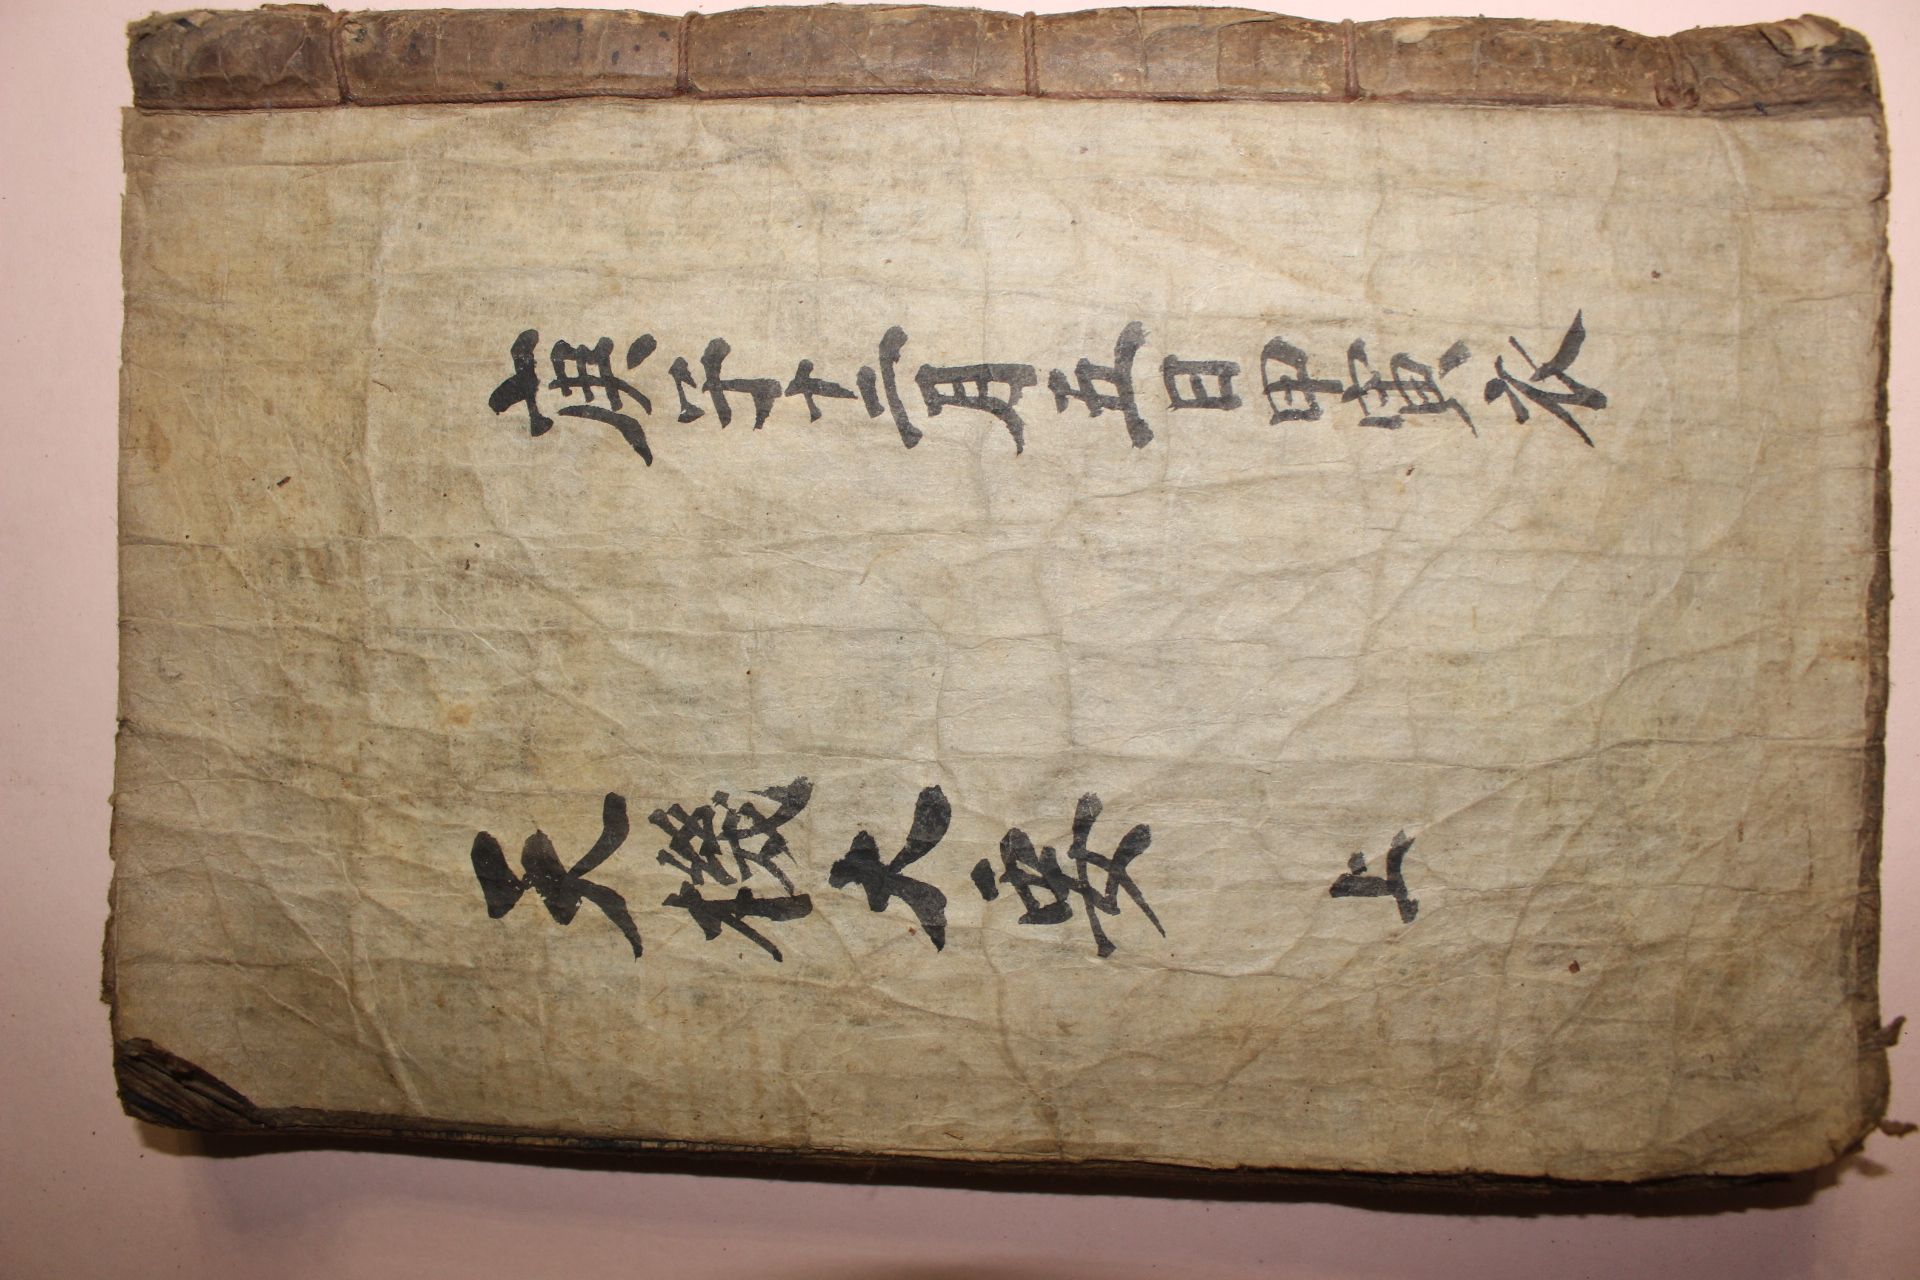 庚子十二月五日甲寅衣
天機大要 上